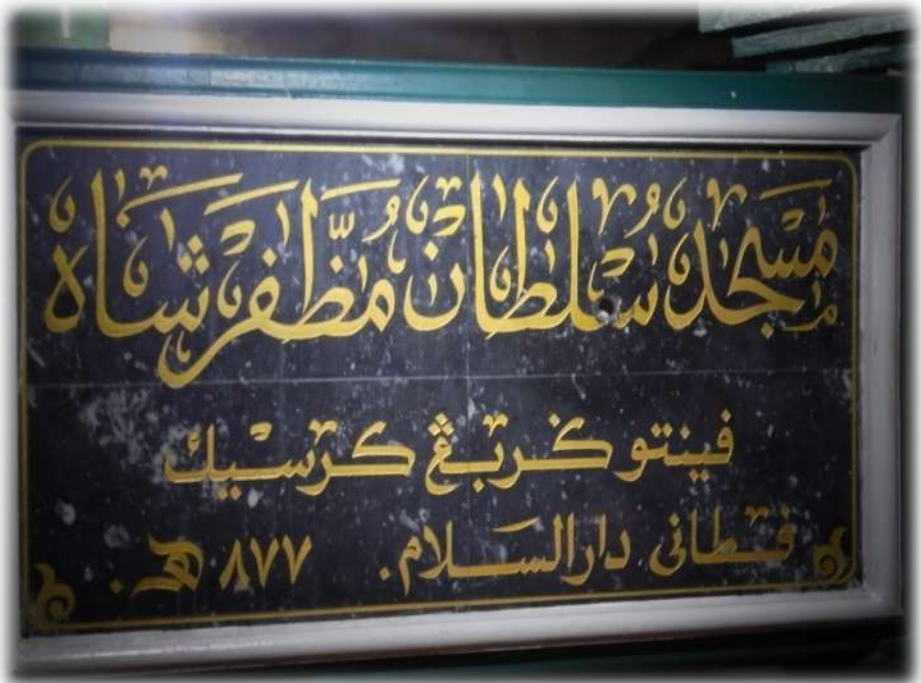 مَسْجِدْ سُلْطَانْ مُظَّفَرْ شَاهْ
فينتو كربڠ كرسيك
فطاني دارالسلام. ٨٧٧ هـ.